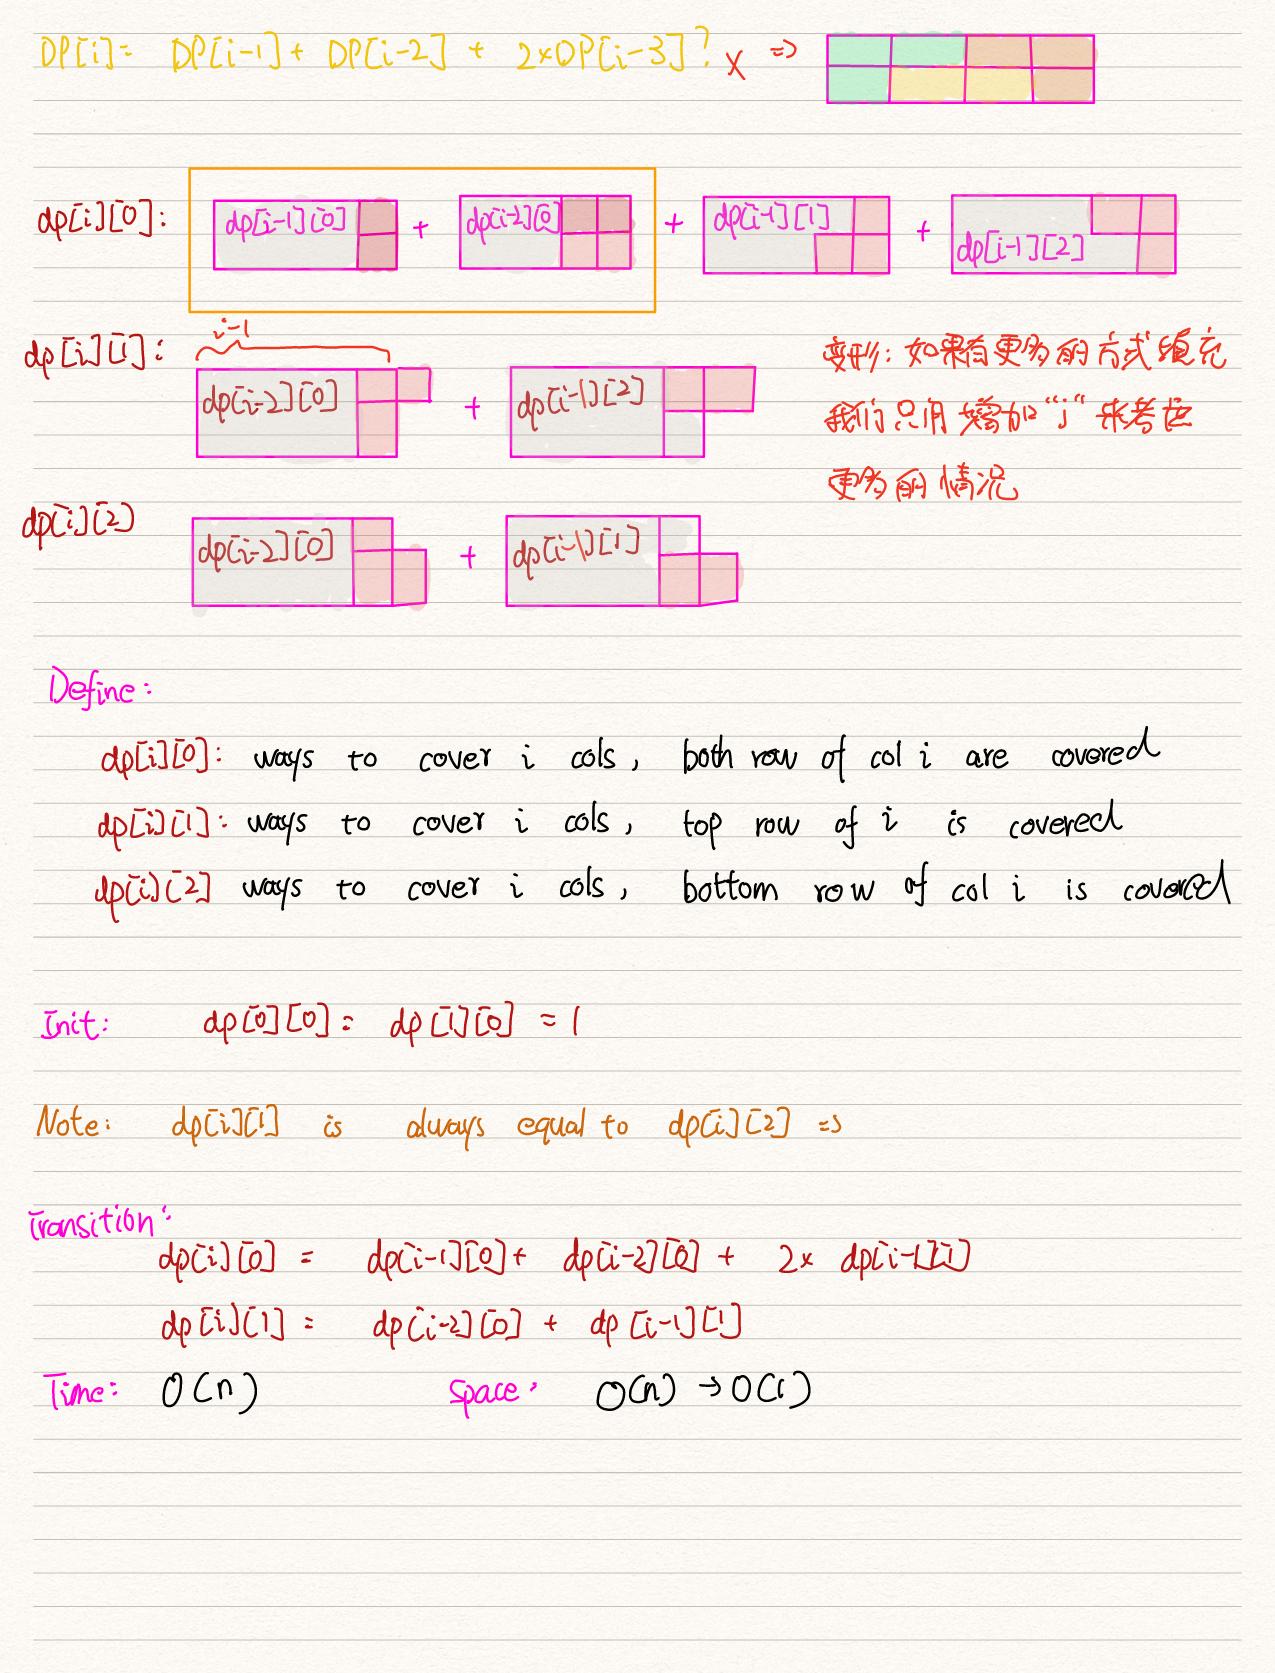 DP[i]= DP[i-1] + DP[i-2] + 2×DP[i-3]? X =>
dp[i][0]: dp[i-1][0] + dp[i-2][0] + dp[i-1][1] + dp[i-1][2]
i-1
dp[i][1]: dp[i-2][0] + dp[i-1][2]
变形: 如果有更多的方式填充
我们只用增加"j"来考虑
更多的情况
dp[i][2] dp[i-2][0] + dp[i-1][1]
Define:
dp[i][0]: ways to cover i cols, both row of col i are covered
dp[i][1]: ways to cover i cols, top row of i is covered
dp[i][2] ways to cover i cols, bottom row of col i is covered
Init: dp[0][0] = dp[1][0] = 1
Note: dp[i][1] is always equal to dp[i][2] =>
Transition:
dp[i][0] = dp[i-1][0] + dp[i-2][0] + 2× dp[i-1][1]
dp[i][1] = dp[i-2][0] + dp[i-1][1]
Time: O(n) Space: O(n) → O(1)